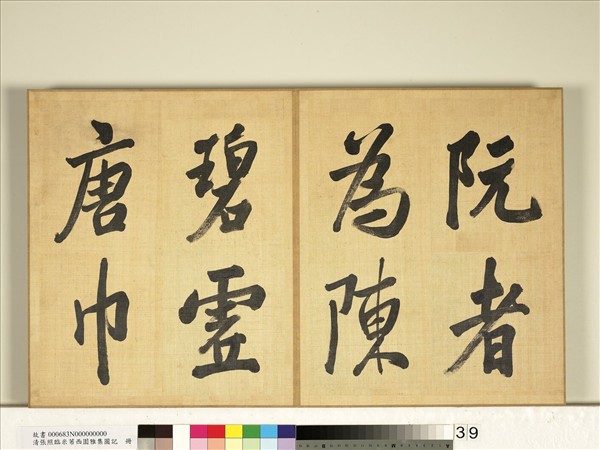 阮者
為陳
碧虛
唐巾
故書 000683N000000000
清張照臨米芾西園雅集圖記 冊
39